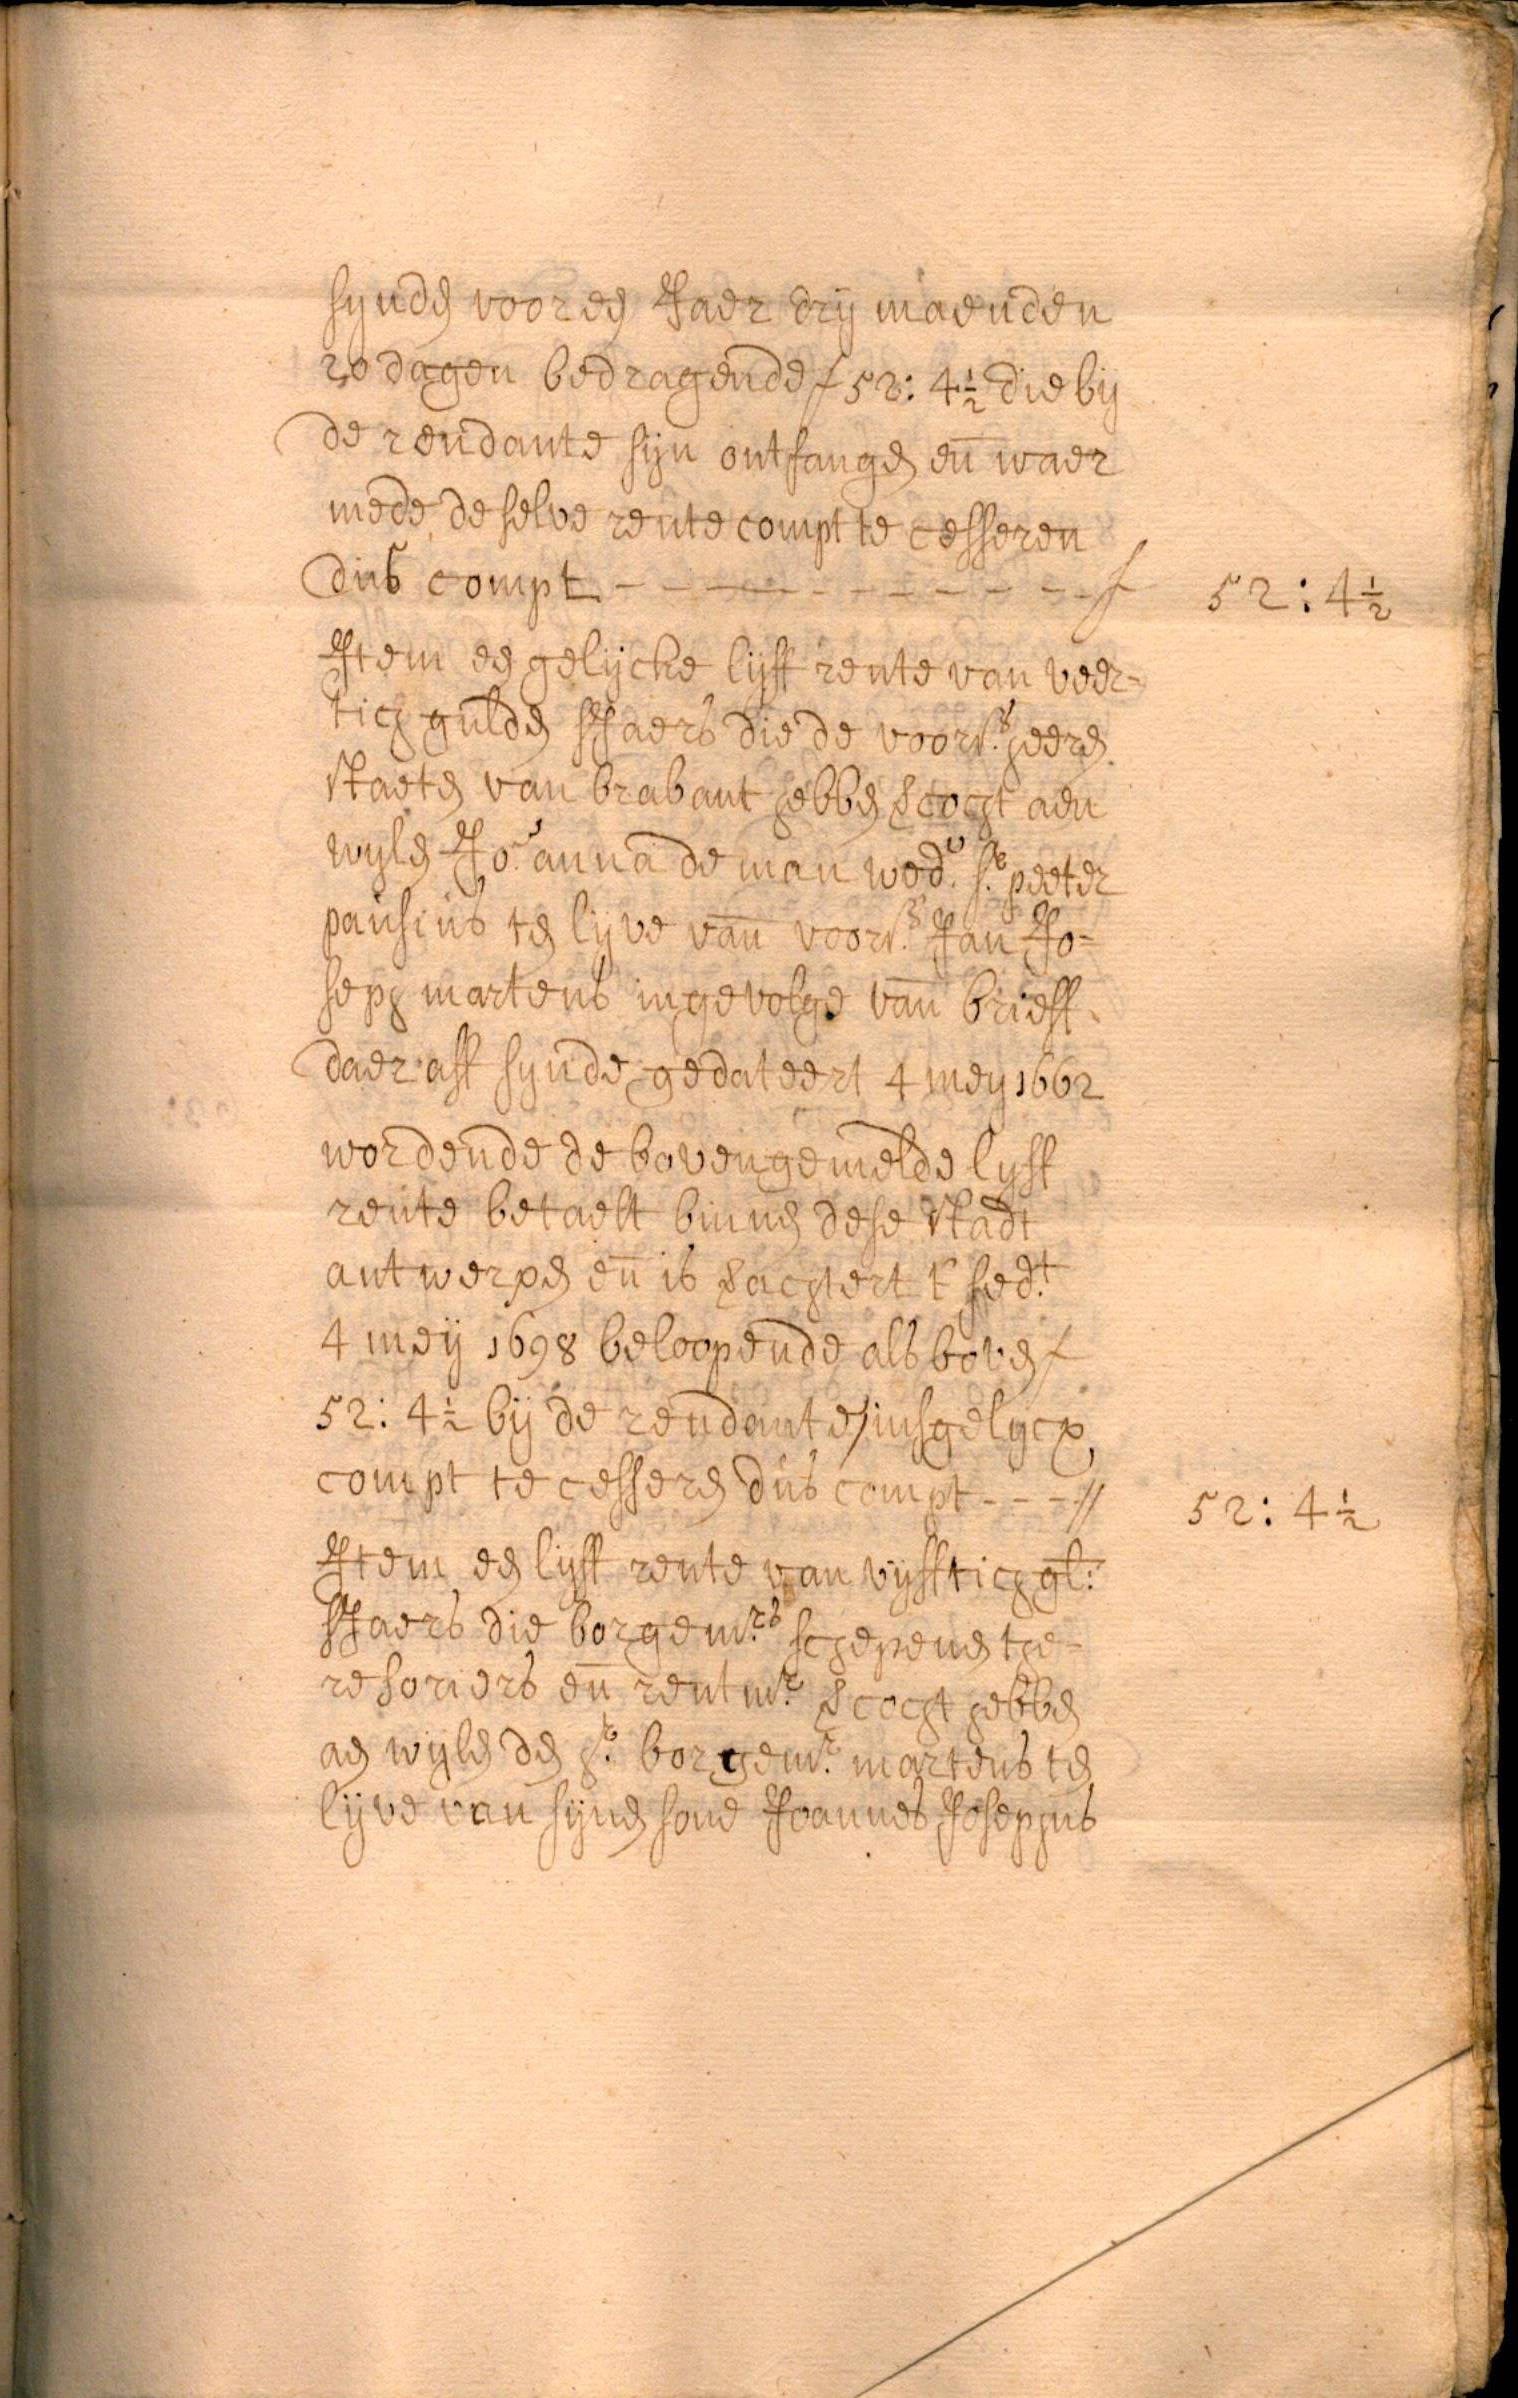 synde voor een Jaer drij maenden
20 dagen bedragende f 52: 4½ die bij
de rendante sijn ontfangen en̄ waer
mede de selve rente compt te cesseren
dus compt - - - - - - - - - - f 52: 4½
Item een gelijcke lijff rente van veer-
tich gulden sJaers die de voors. heeren
staeten van brabant hebben vercocht aen
wylen Jo.ᵉ anna de man wed.ᵉ Sr. peeter
pausius ten lijve van̄ voors. Jan Jo-
seph martens ingevolge van̄ brieff
daer aff synde gedateert 4 mey 1662
wordende de bovengemelde lyff
rente betaelt binnen dese stadt
antwerpen en̄ is verachtert t' sed.t
4 meij 1698 beloopende als boven f
52: 4½ bij de rendante / insgelycx
compt te cesseren dus compt - - - // 52: 4½
Item een lijff rente van vijfftich gl:
sJaers die borgem.rs schepenen the-
resoriers en̄ rentm.r vercocht hebben
aen wijlen den hr. borgem.r martens ten
lijve van sijnen sone Joannes Josephus